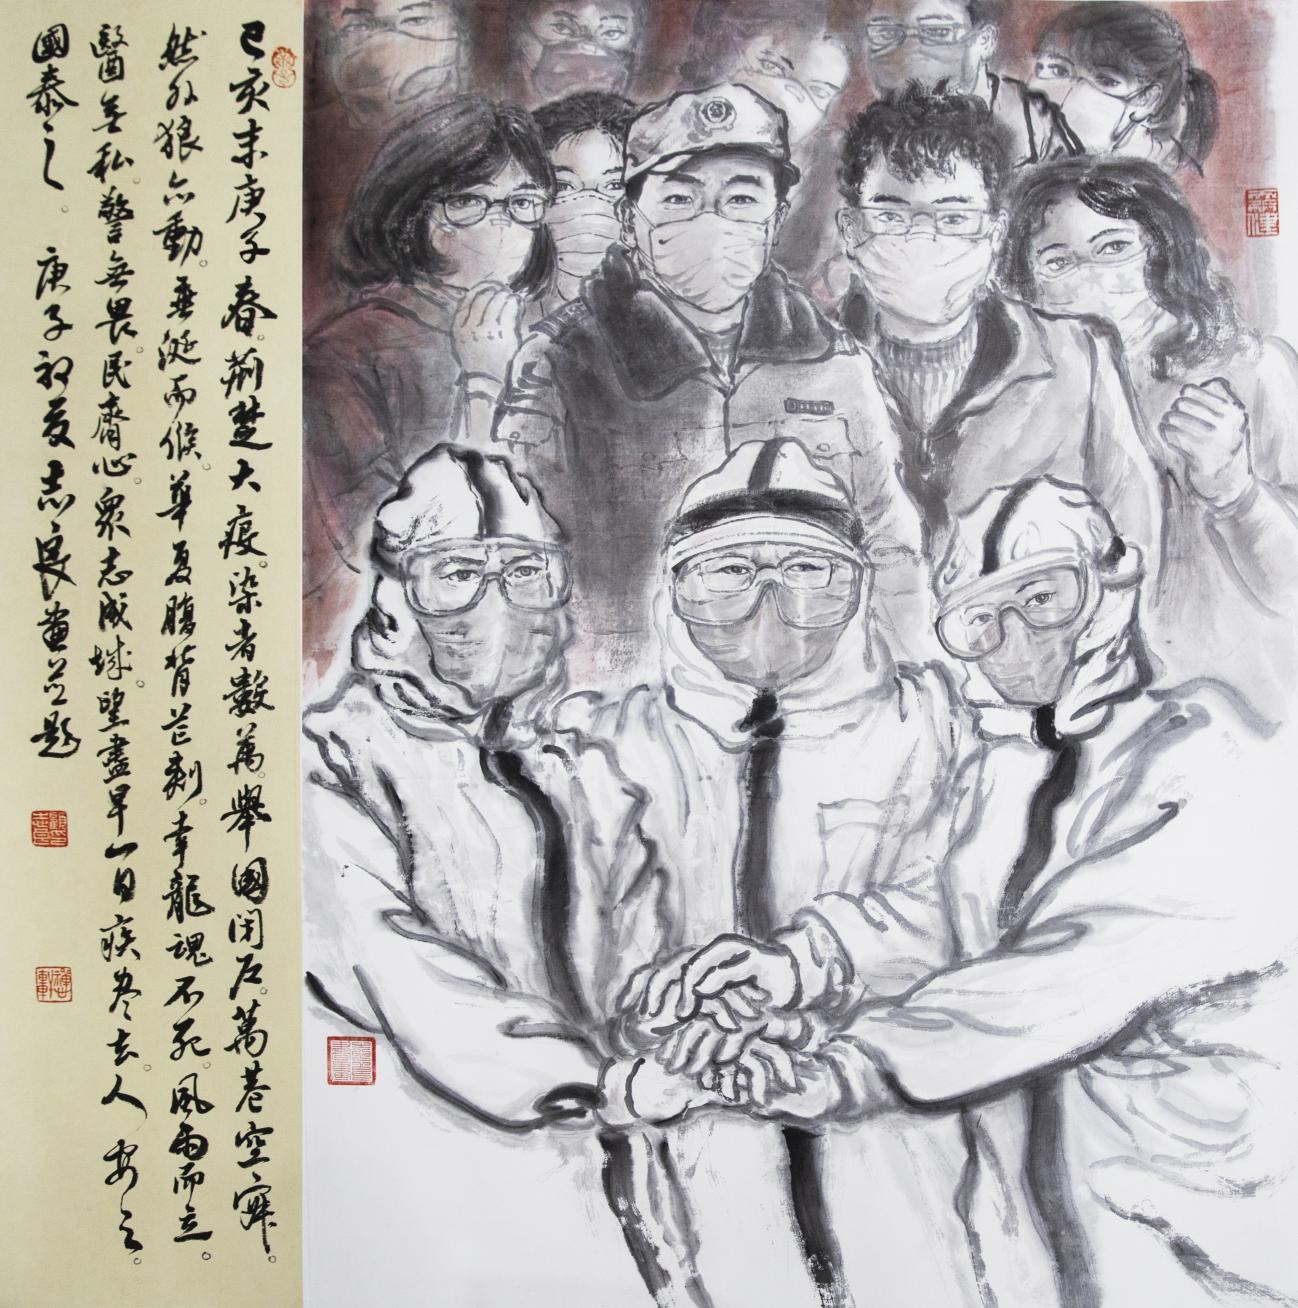 己亥末庚子春。荊楚大疫。染者數萬。舉國閉户。萬巷空寂。
然外狼亦動。垂涎而候。華夏腹背芒刺。幸龍魂不死。風雨而立。
醫無私。警無畏。民齊心。衆志成城。望盡早一日疾盡去。人安之。
國泰之。 庚子初 志良畫並題